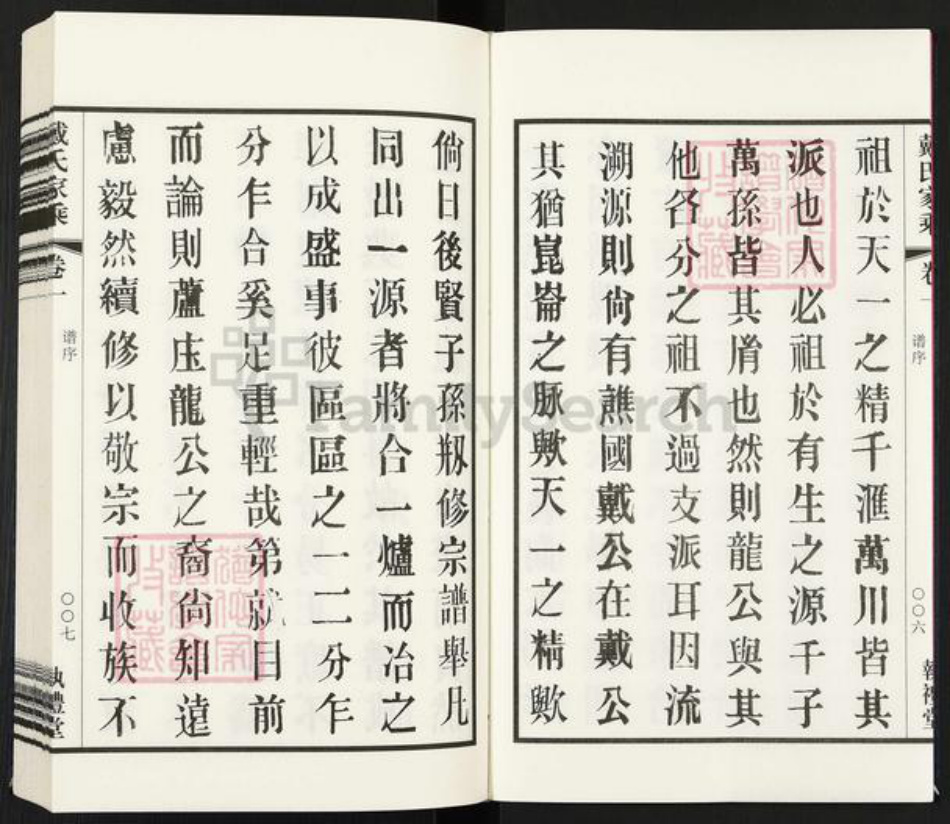 戴氏家乘
卷一
谱序
〇〇六
祖於天一之精千滙萬川皆其
派也人必祖於有生之源千子
萬孫皆其胤也然則龍公與其
他各分之祖不過支派耳因流
溯源則尙有譙國戴公在戴公
其猶崑崙之脉歟天一之精歟
倘日後賢子孫剏修宗譜舉凡
同出一源者將合一爐而冶之
以成盛事彼區區之一二分乍
分乍合奚足重輕哉第就目前
而論則蘆庄龍公之裔尙知遠
慮毅然續修以敬宗而收族不
戴氏家乘
卷一
谱序
〇〇七
執禮堂
FamilySearch